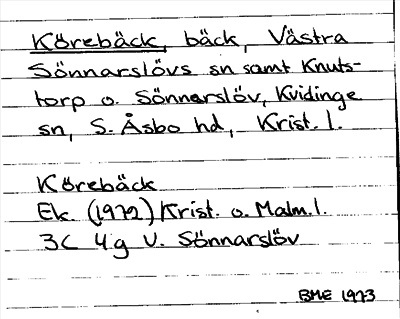 Körebäck, bäck, Västra
Sönnarslövs sn samt Knuts-
torp o. Sönnerslöv, Kvidinge
sn, S. Åsbo hd, Krist. l.
Körebäck
Ek. (1972) Krist. o. Malm. l.
3C 4g V. Sönnarslöv
BME 1973